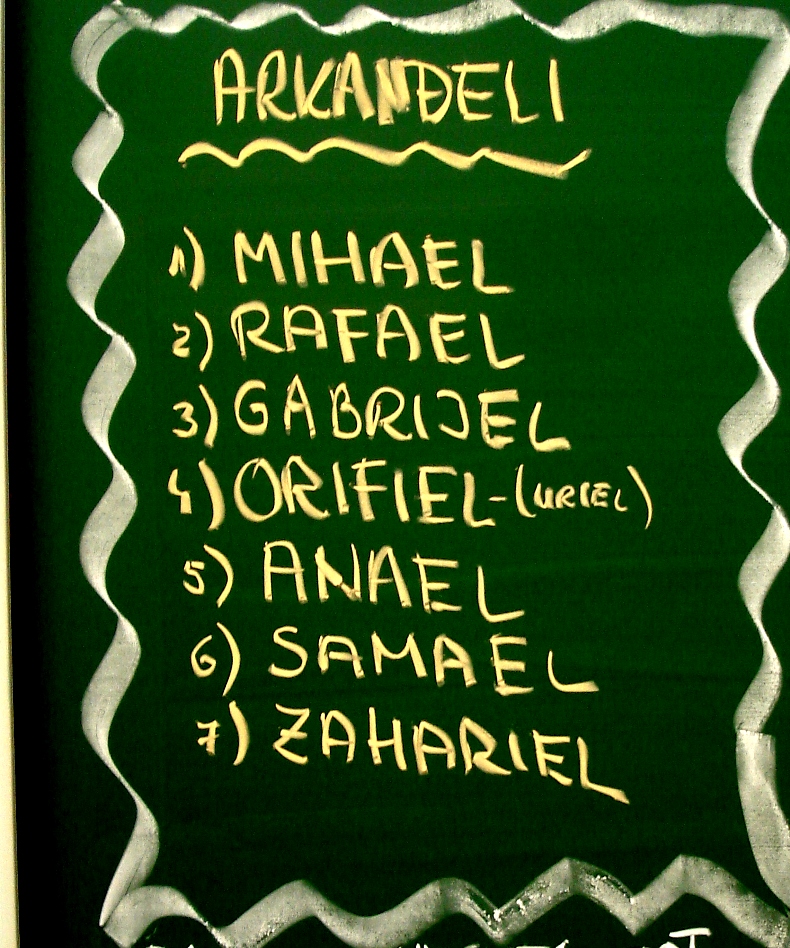 ARKANĐELI
1) MIHAEL
2) RAFAEL
3) GABRIJEL
4) ORIFIEL-(URIEL)
5) ANAEL
6) SAMAEL
7) ZAHARIEL